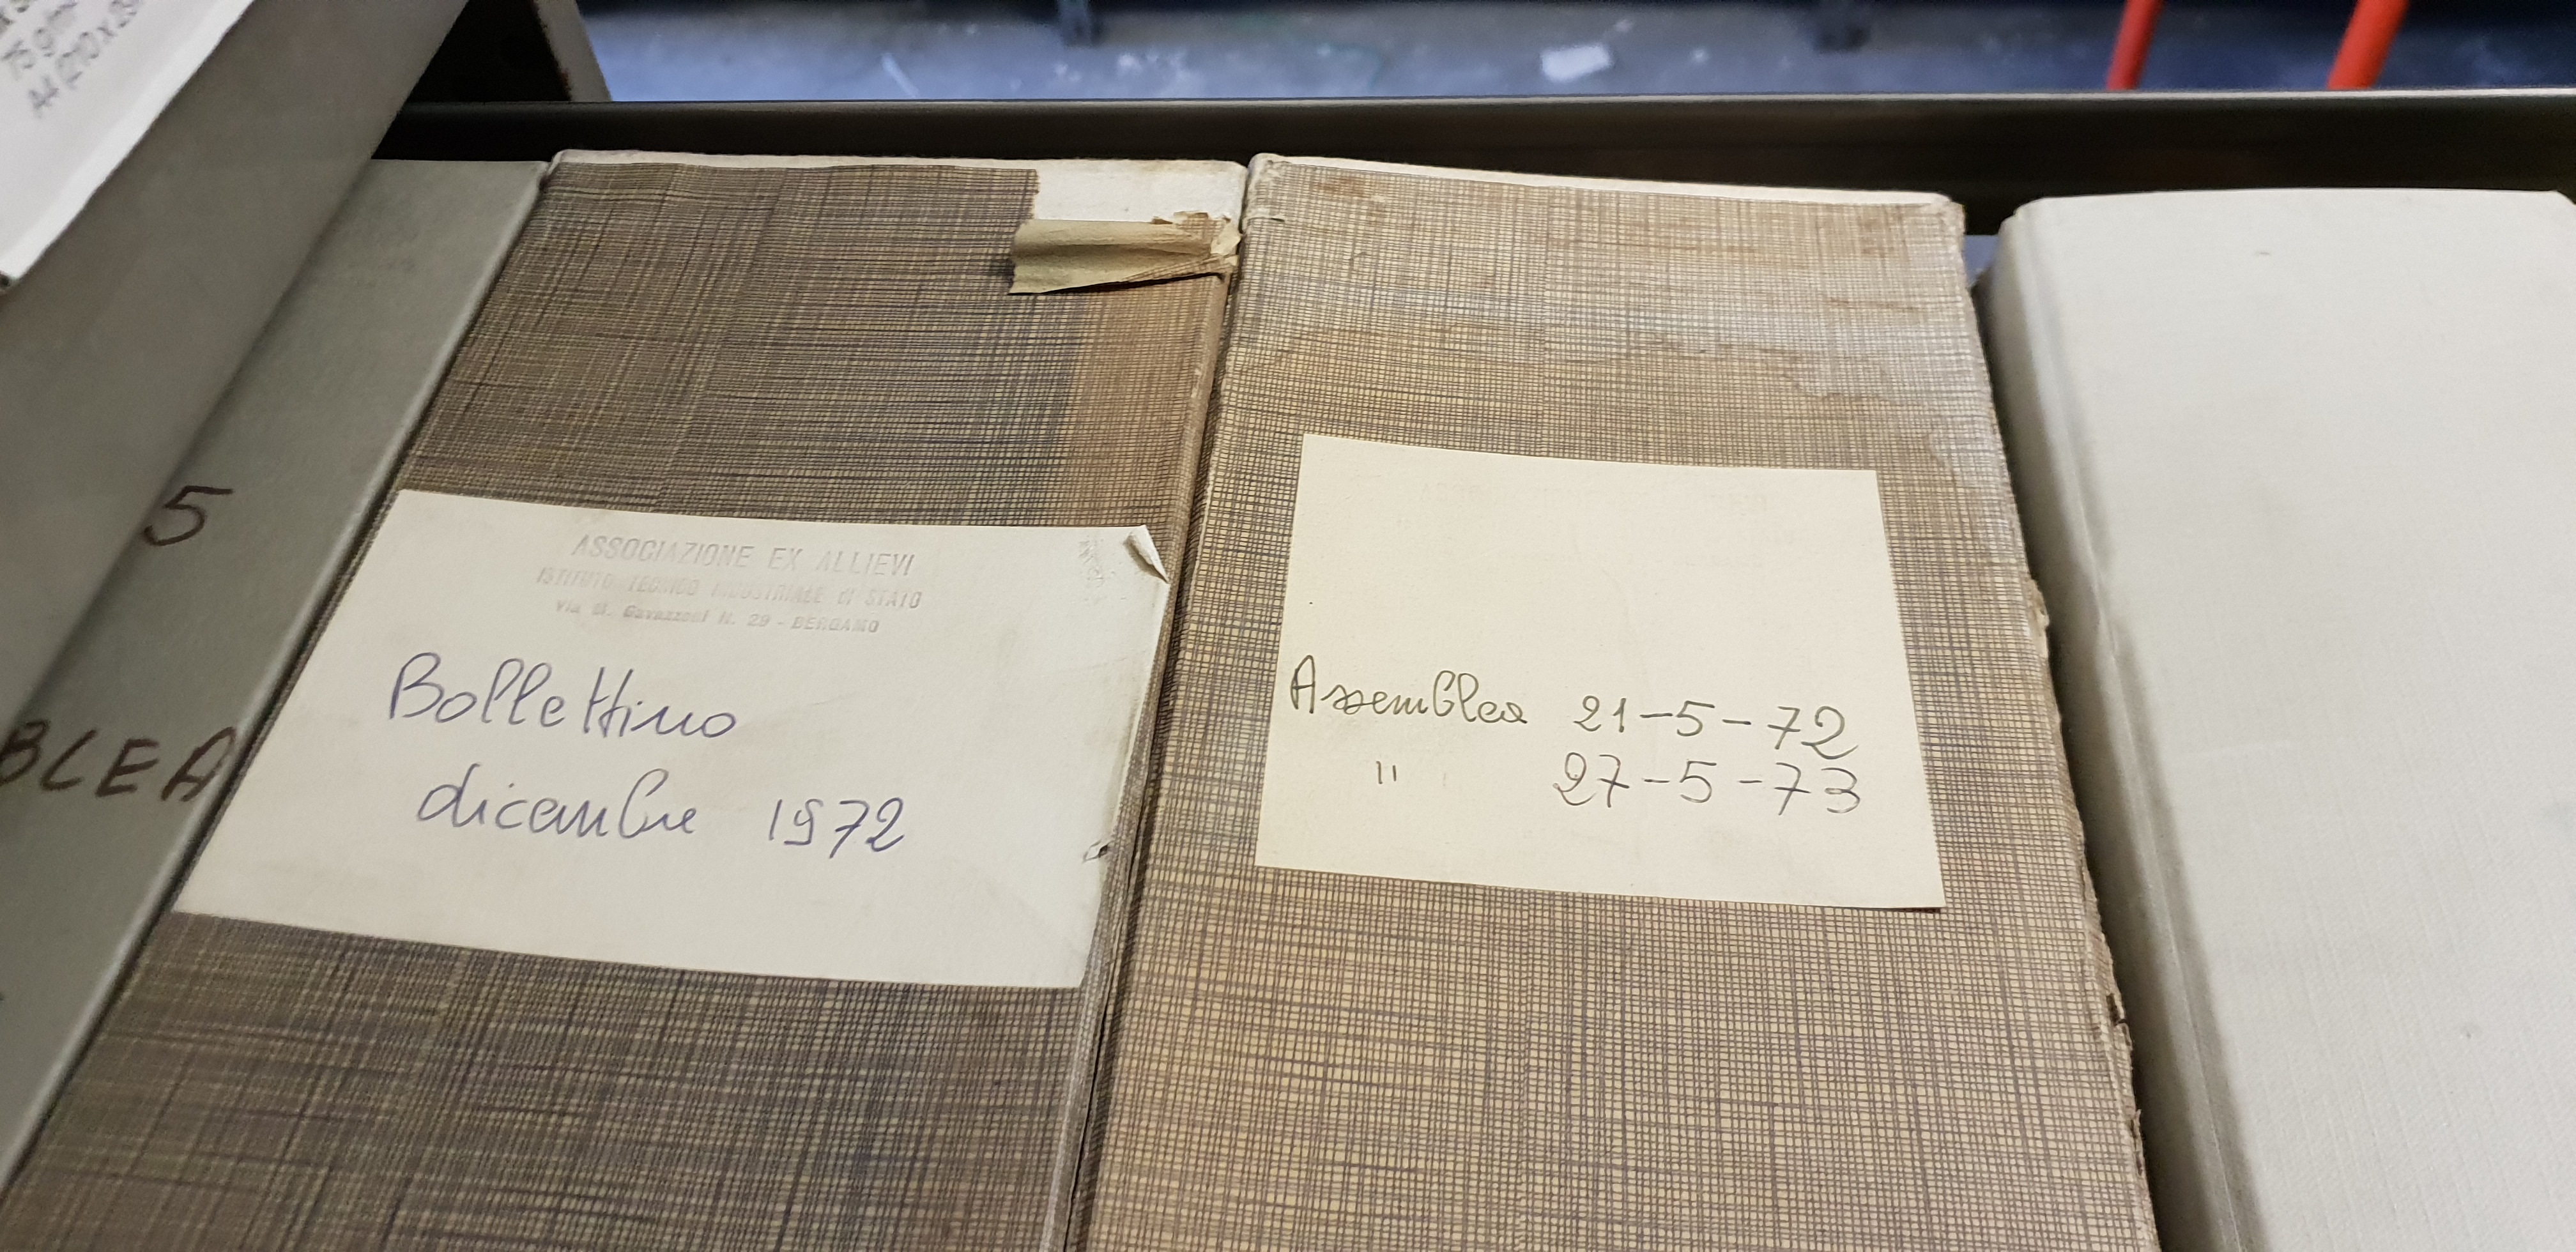 75 g/m
A4 (210 x 29
5
BLEA
ASSOCIAZIONE EX ALLIEVI
ISTITUTO TECNICO INDUSTRIALE di STATO
Via G. Gavazzeni N. 29 - BERGAMO
Bollettino
dicembre 1972
Assemblea 21-5-72
" 27-5-73